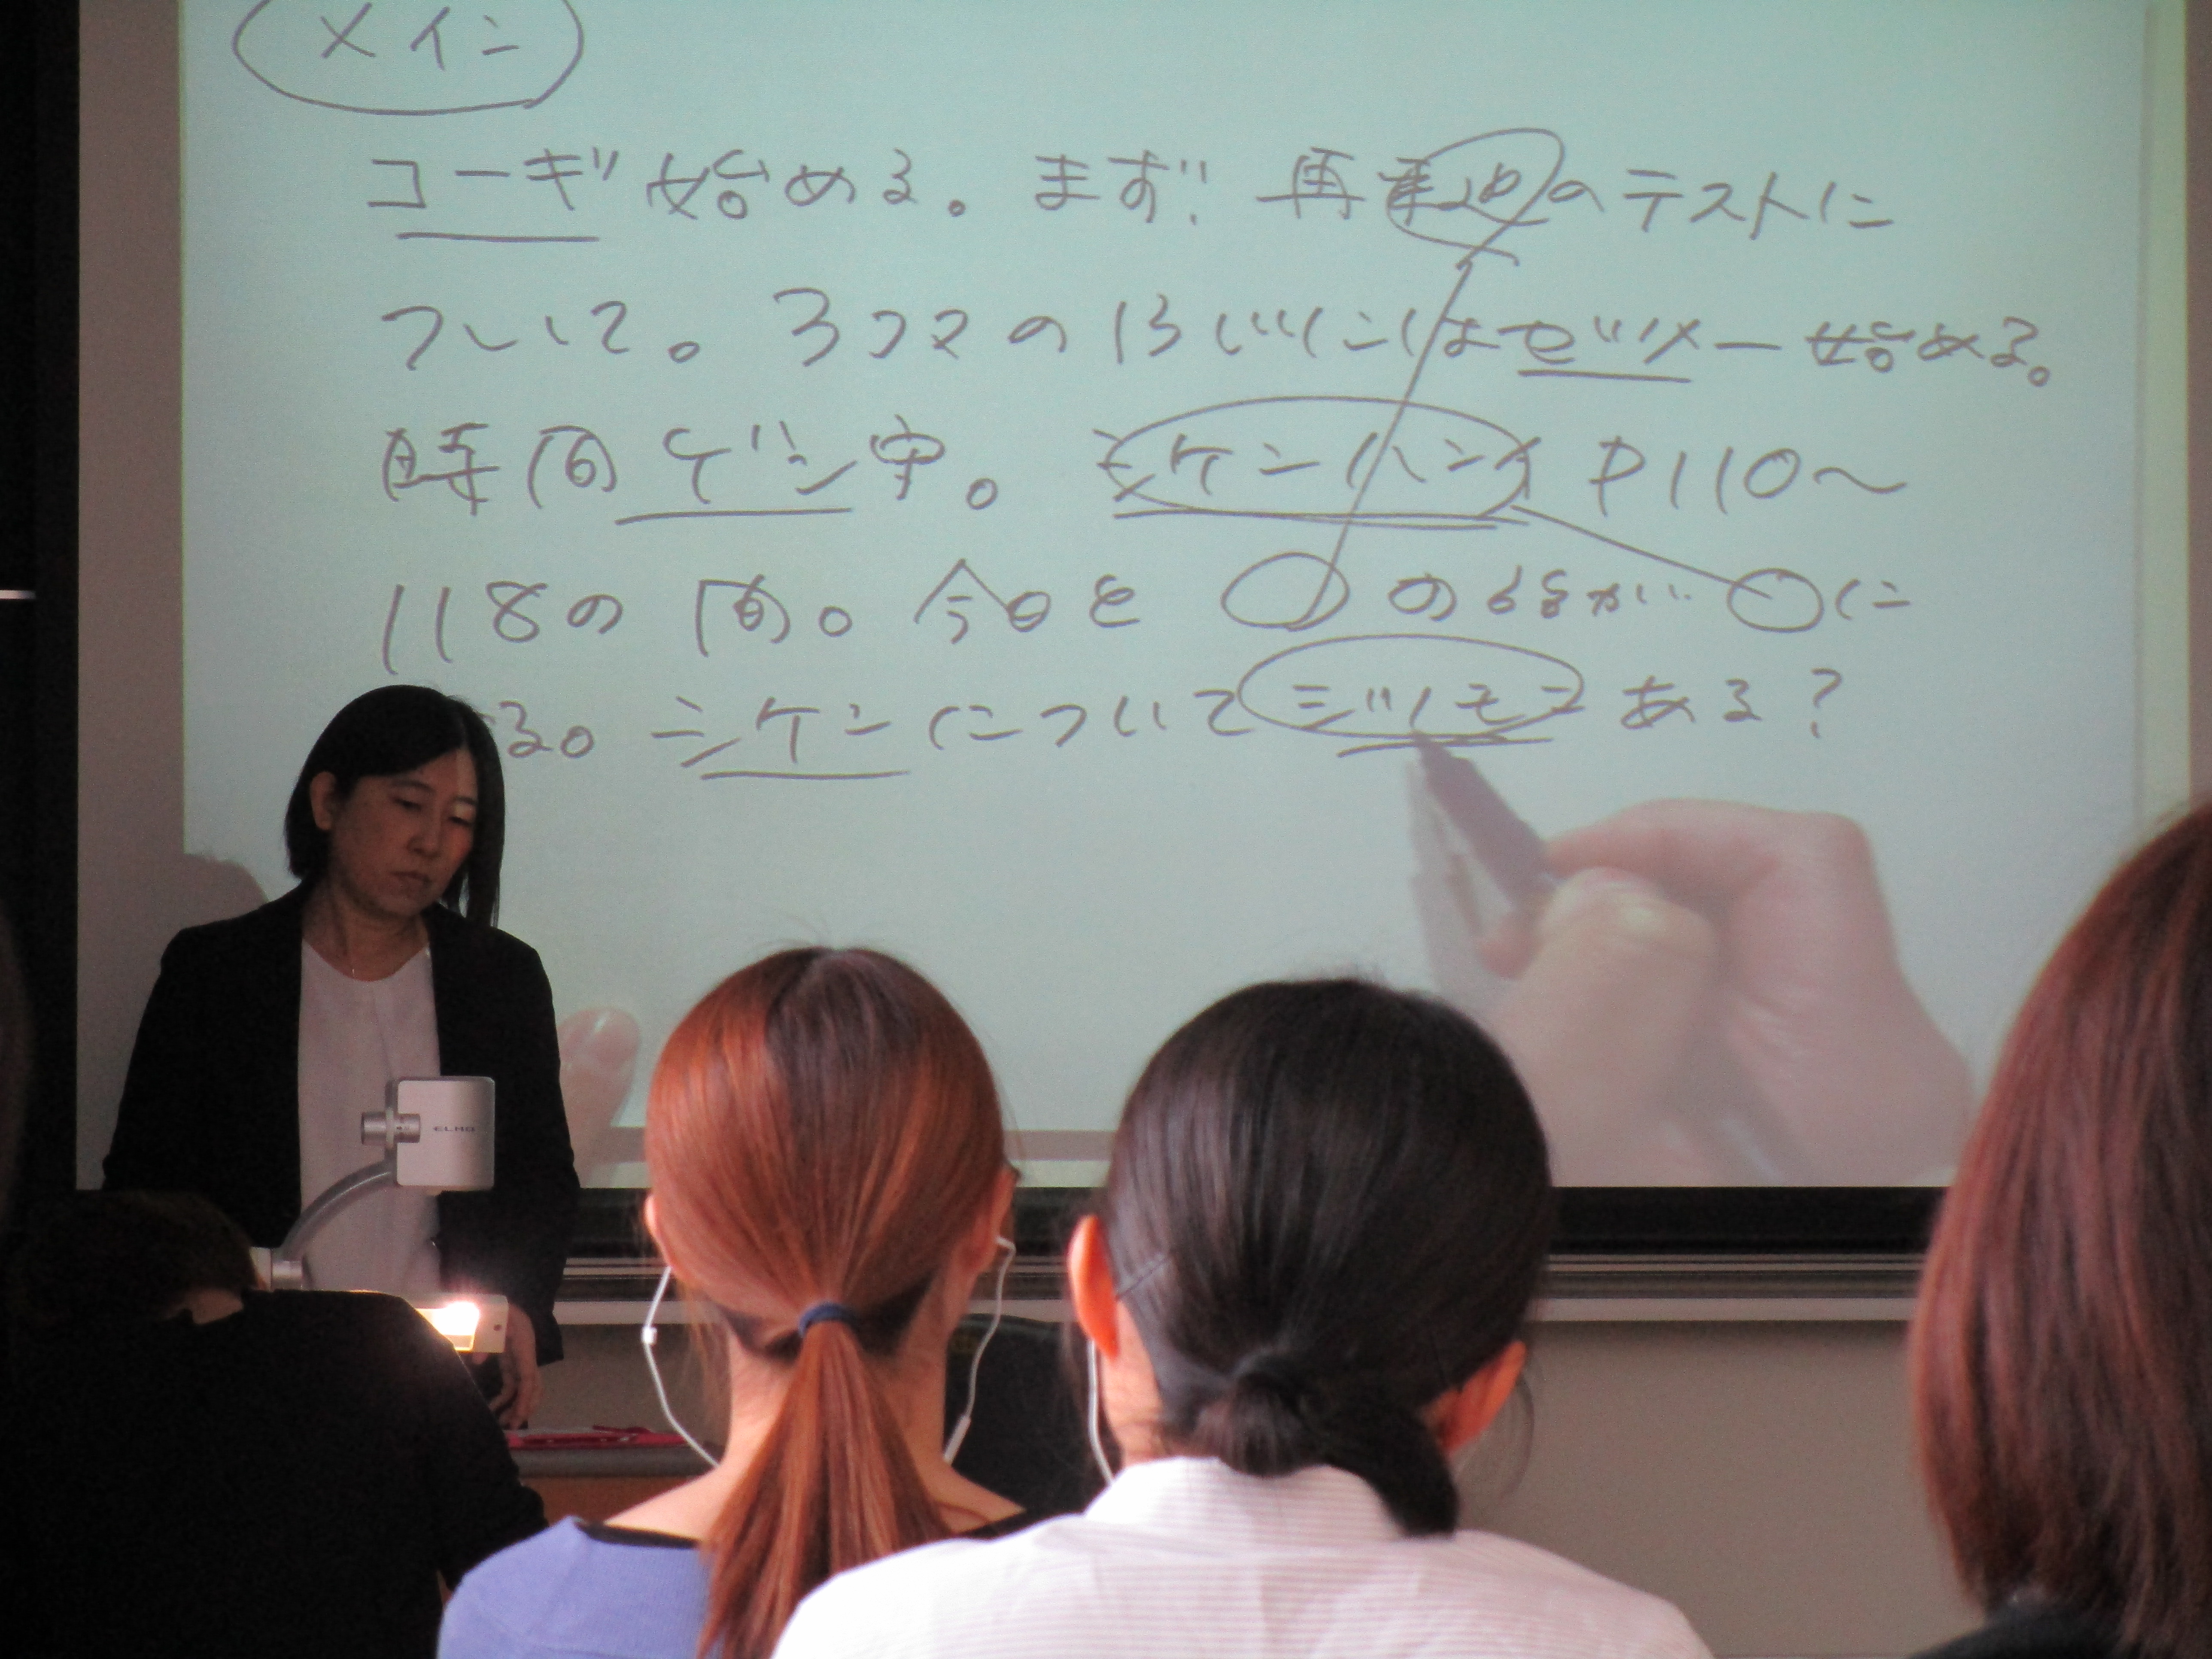 メイン
コーギ始める。まず 再来週のテストに
ついて。3コマの はじは ゼツメー始める。
時間ゲン守。シケンハンイ P110〜
118の間。今日を の が に
る。シケンについて シツモン ある?
ELMO